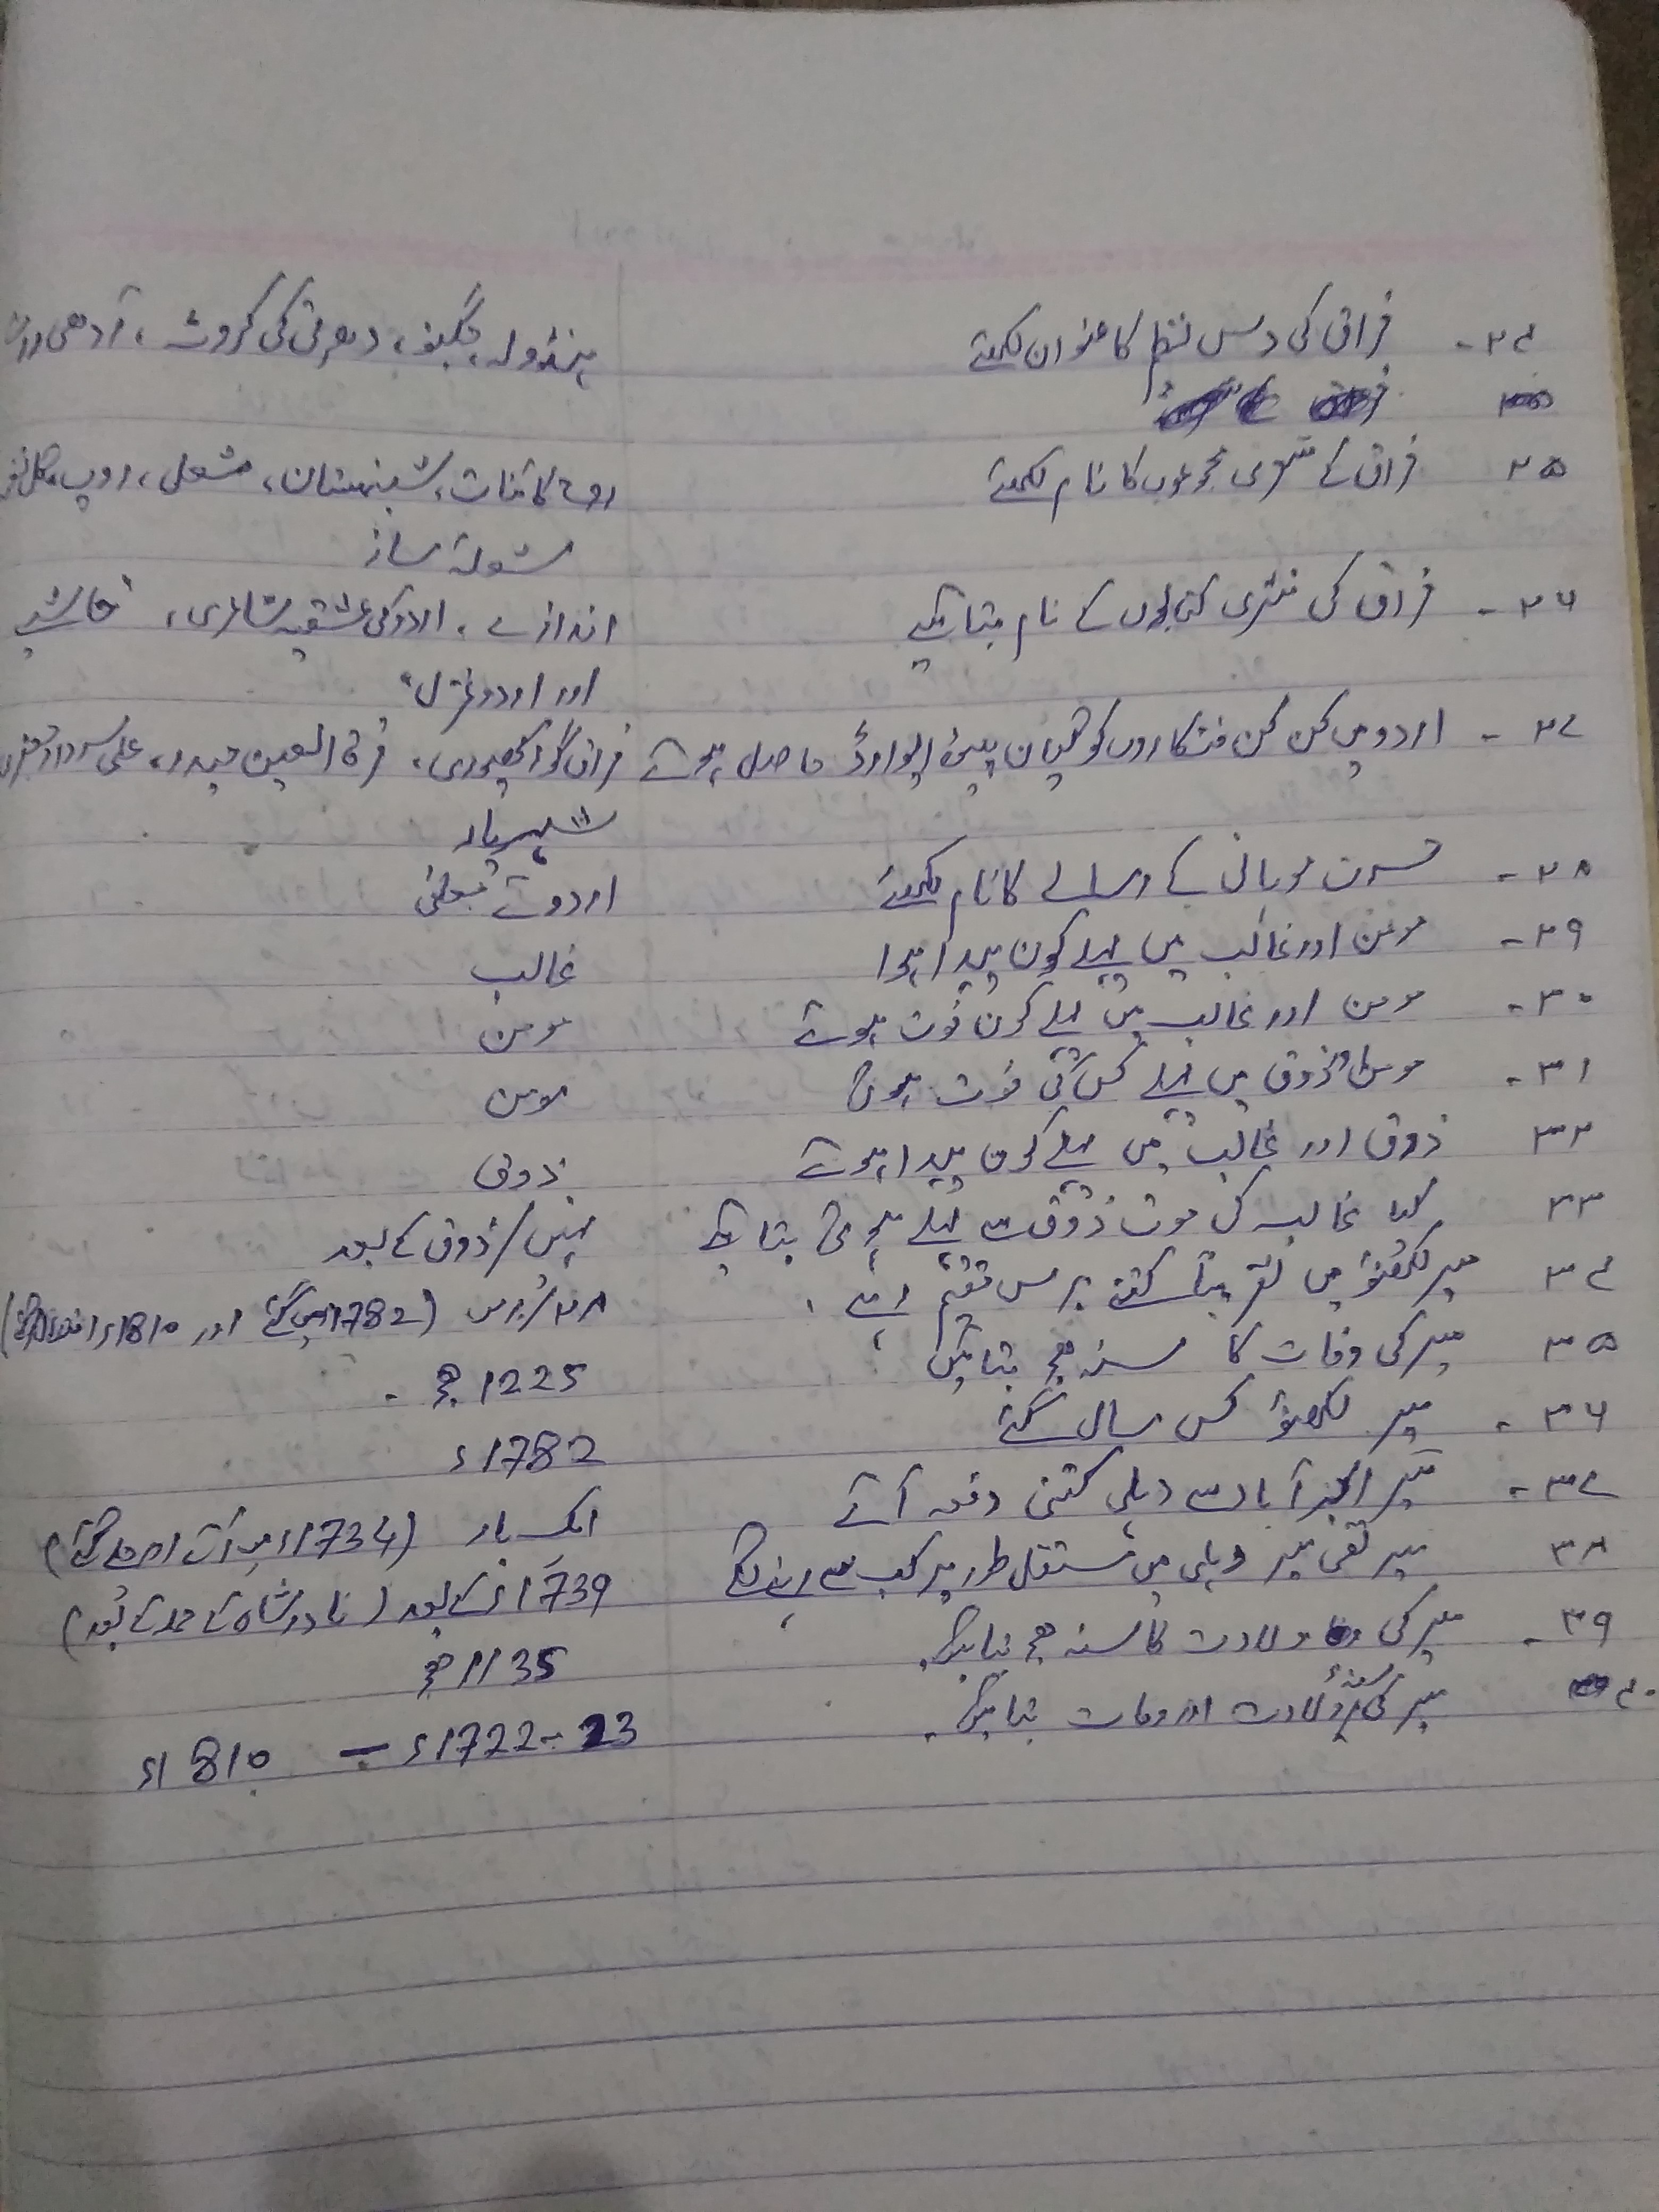 ۲۴۔ فراق کی دس نظم کا عنوان لکھئے ہنڈولہ، جگنو، دھرتی کی کروٹ، آدھی رات
۲۵ فراق کے شعری مجموعوں کا نام لکھئے روح کائنات، شبنمستان، مشعل، روپ،
شعلۂ ساز
۲۶۔ فراق کی نثری کتابوں کے نام بتائیے اندازے، اردو کی عشقیہ شاعری، حاشیے
اور اردو غزل
۲۷۔ اردو میں کن کن فنکاروں کو گیان پیٹھ ایوارڈ حاصل ہوئے فراق گورکھپوری، قرۃ العین حیدر، علی سردار جعفری
شہریار
۲۸۔ حسرت موہانی کے رسالے کا نام لکھئے اردوئے معلیٰ
۲۹۔ مومن اور غالب میں پہلے کون پیدا ہوا غالب
۳۰۔ مومن اور غالب میں پہلے کون فوت ہوئے مومن
۳۱۔ مومن و ذوق میں پہلے کس کی فوت ہوئی مومن
۳۲ ذوق اور غالب میں پہلے کون پیدا ہوئے ذوق
۳۳ کیا غالب کی موت ذوق سے پہلے ہوئی بتائیے نہیں/ذوق کے بعد
۳۴ میر لکھنؤ میں تقریباً کتنے برس مقیم رہے ۲۸/برس (1782ء میں گئے اور 1810ء
۳۵ میر کی وفات کا سنہ ھج بتائیں 1225 ھج۔
۳۶۔ میر لکھنؤ کس سال گئے 1782ء
۳۷۔ میر اکبر آباد سے دہلی کتنی دفعہ آئے ایک بار (1734ء میں آئے
۳۸ میر تقی میر دہلی میں مستقل طور پر کب سے رہنے لگے 1739ء کے بعد (نادر شاہ کے حملہ کے بعد)
۳۹۔ میر کی ولادت کا سنہ ھج بتائیں 1135 ھج
۴۰ میر کی سنۂ ولادت اور وفات بتائیں۔ 1722-23ء — 1810ء